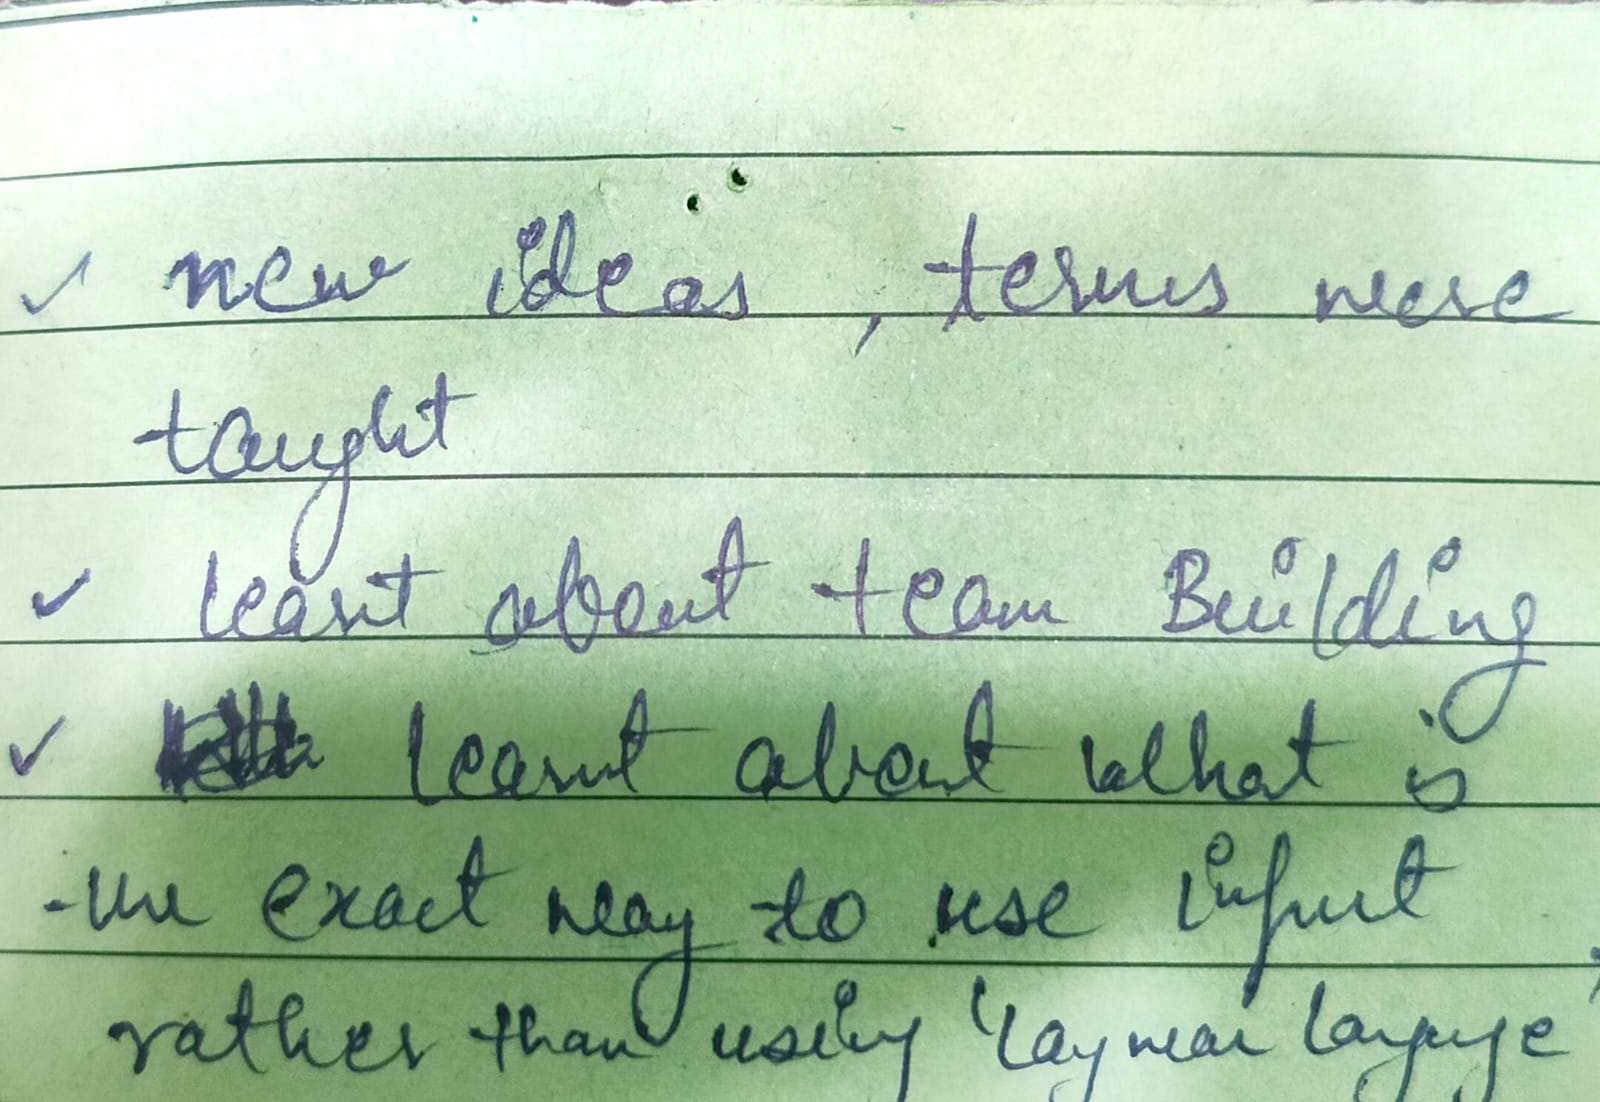 ✓ new ideas, terms were
taught
✓ learnt about team Building
✓ learnt about what is
the exact way to use input
rather than using 'layman languge'